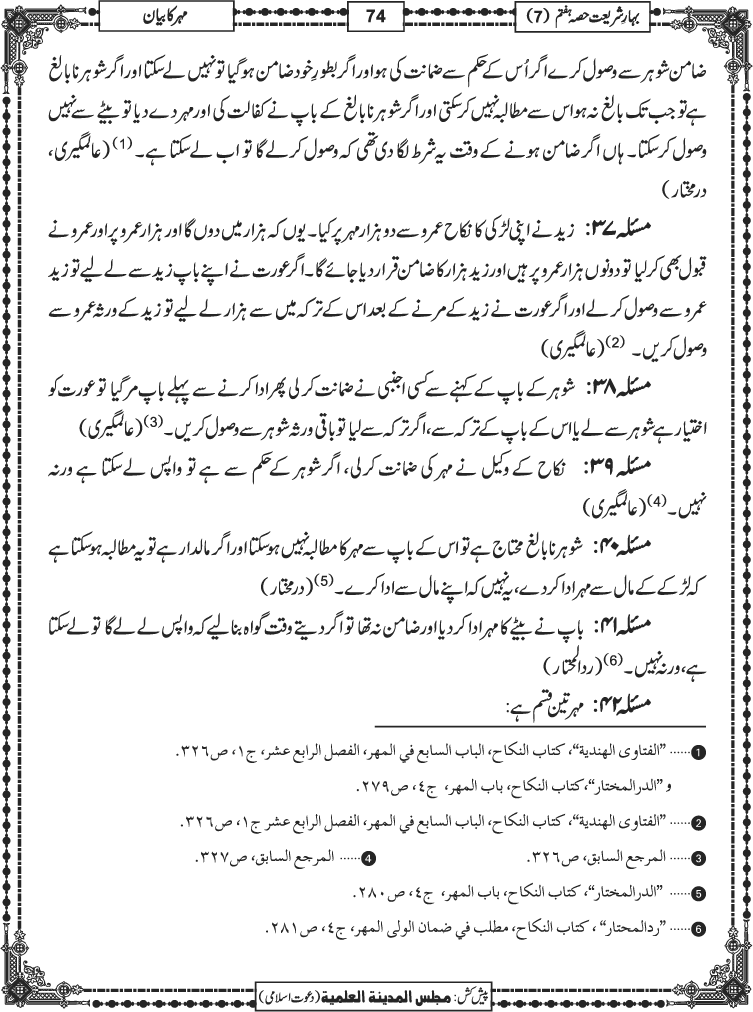 بہارِ شریعت حصہ ہفتم (7)
74
مہر کا بیان
ضامن شوہر سے وصول کرے اگر اُس کے حکم سے ضمانت کی ہو اور اگر بطورِ خود ضامن ہو گیا تو نہیں لے سکتا اور اگر شوہر نابالغ
ہے تو جب تک بالغ نہ ہو اس سے مطالبہ نہیں کر سکتی اور اگر شوہر نابالغ کے باپ نے کفالت کی اور مہر دے دیا تو بیٹے سے نہیں
وصول کر سکتا۔ ہاں اگر ضامن ہونے کے وقت یہ شرط لگا دی تھی کہ وصول کر لے گا تو اب لے سکتا ہے۔ (1) (عالمگیری،
درمختار)
مسئلہ ۳۷: زید نے اپنی لڑکی کا نکاح عمرو سے دو ہزار مہر پر کیا۔ یوں کہ ہزار میں دوں گا اور ہزار عمرو پر اور عمرو نے
قبول بھی کر لیا تو دونوں ہزار عمرو پر ہیں اور زید ہزار کا ضامن قرار دیا جائے گا۔ اگر عورت نے اپنے باپ زید سے لے لیے تو زید
عمرو سے وصول کر لے اور اگر عورت نے زید کے مرنے کے بعد اس کے ترکہ میں سے ہزار لے لیے تو زید کے ورثہ عمرو سے
وصول کریں۔ (2) (عالمگیری)
مسئلہ ۳۸: شوہر کے باپ کے کہنے سے کسی اجنبی نے ضمانت کر لی پھر ادا کرنے سے پہلے باپ مر گیا تو عورت کو
اختیار ہے شوہر سے لے یا اس کے باپ کے ترکہ سے، اگر ترکہ سے لیا تو باقی ورثہ شوہر سے وصول کریں۔ (3) (عالمگیری)
مسئلہ ۳۹: نکاح کے وکیل نے مہر کی ضمانت کر لی، اگر شوہر کے حکم سے ہے تو واپس لے سکتا ہے ورنہ
نہیں۔ (4) (عالمگیری)
مسئلہ ۴۰: شوہر نابالغ محتاج ہے تو اس کے باپ سے مہر کا مطالبہ نہیں ہو سکتا اور اگر مالدار ہے تو یہ مطالبہ ہو سکتا ہے
کہ لڑکے کے مال سے مہر ادا کر دے، یہ نہیں کہ اپنے مال سے ادا کرے۔ (5) (درمختار)
مسئلہ ۴۱: باپ نے بیٹے کا مہر ادا کر دیا اور ضامن نہ تھا تو اگر دیتے وقت گواہ بنا لیے کہ واپس لے لے گا تو لے سکتا
ہے، ورنہ نہیں۔ (6) (ردالمحتار)
مسئلہ ۴۲: مہر تین قسم ہے:
1 ...... ”الفتاوی الهندية“، كتاب النكاح، الباب السابع في المهر، الفصل الرابع عشر، ج١، ص٣٢٦.
و ”الدرالمختار“،كتاب النكاح، باب المهر، ج٤، ص٢٧٩.
2 ...... ”الفتاوی الهندية“، كتاب النكاح، الباب السابع في المهر، الفصل الرابع عشر ج١، ص٣٢٦.
3 ...... المرجع السابق، ص٣٢٦. 4 ...... المرجع السابق، ص٣٢٧.
5 ...... ”الدرالمختار“، كتاب النكاح، باب المهر، ج٤، ص٢٨٠.
6 ...... ”ردالمحتار“ ، كتاب النكاح، مطلب في ضمان الولی المهر، ج٤، ص٢٨١.
پیش کش: مجلس المدينة العلمية (دعوت اسلامی)